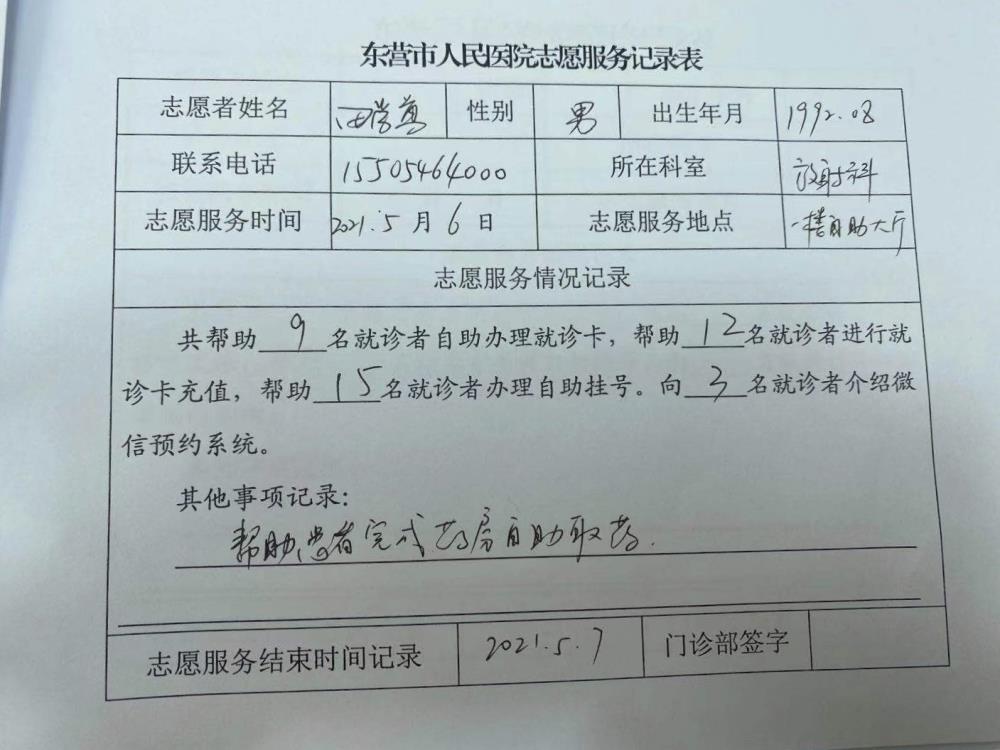 东营市人民医院志愿服务记录表
志愿者姓名 性别 男 出生年月 1992.08
联系电话 15505464000 所在科室 放射科
志愿服务时间 2021.5月6日 志愿服务地点 一楼自助大厅
志愿服务情况记录
共帮助9名就诊者自助办理就诊卡，帮助12名就诊者进行就
诊卡充值，帮助15名就诊者办理自助挂号。向3名就诊者介绍微
信预约系统。
其他事项记录：
帮助患者完成药房自助取药.
志愿服务结束时间记录 2021.5.7 门诊部签字